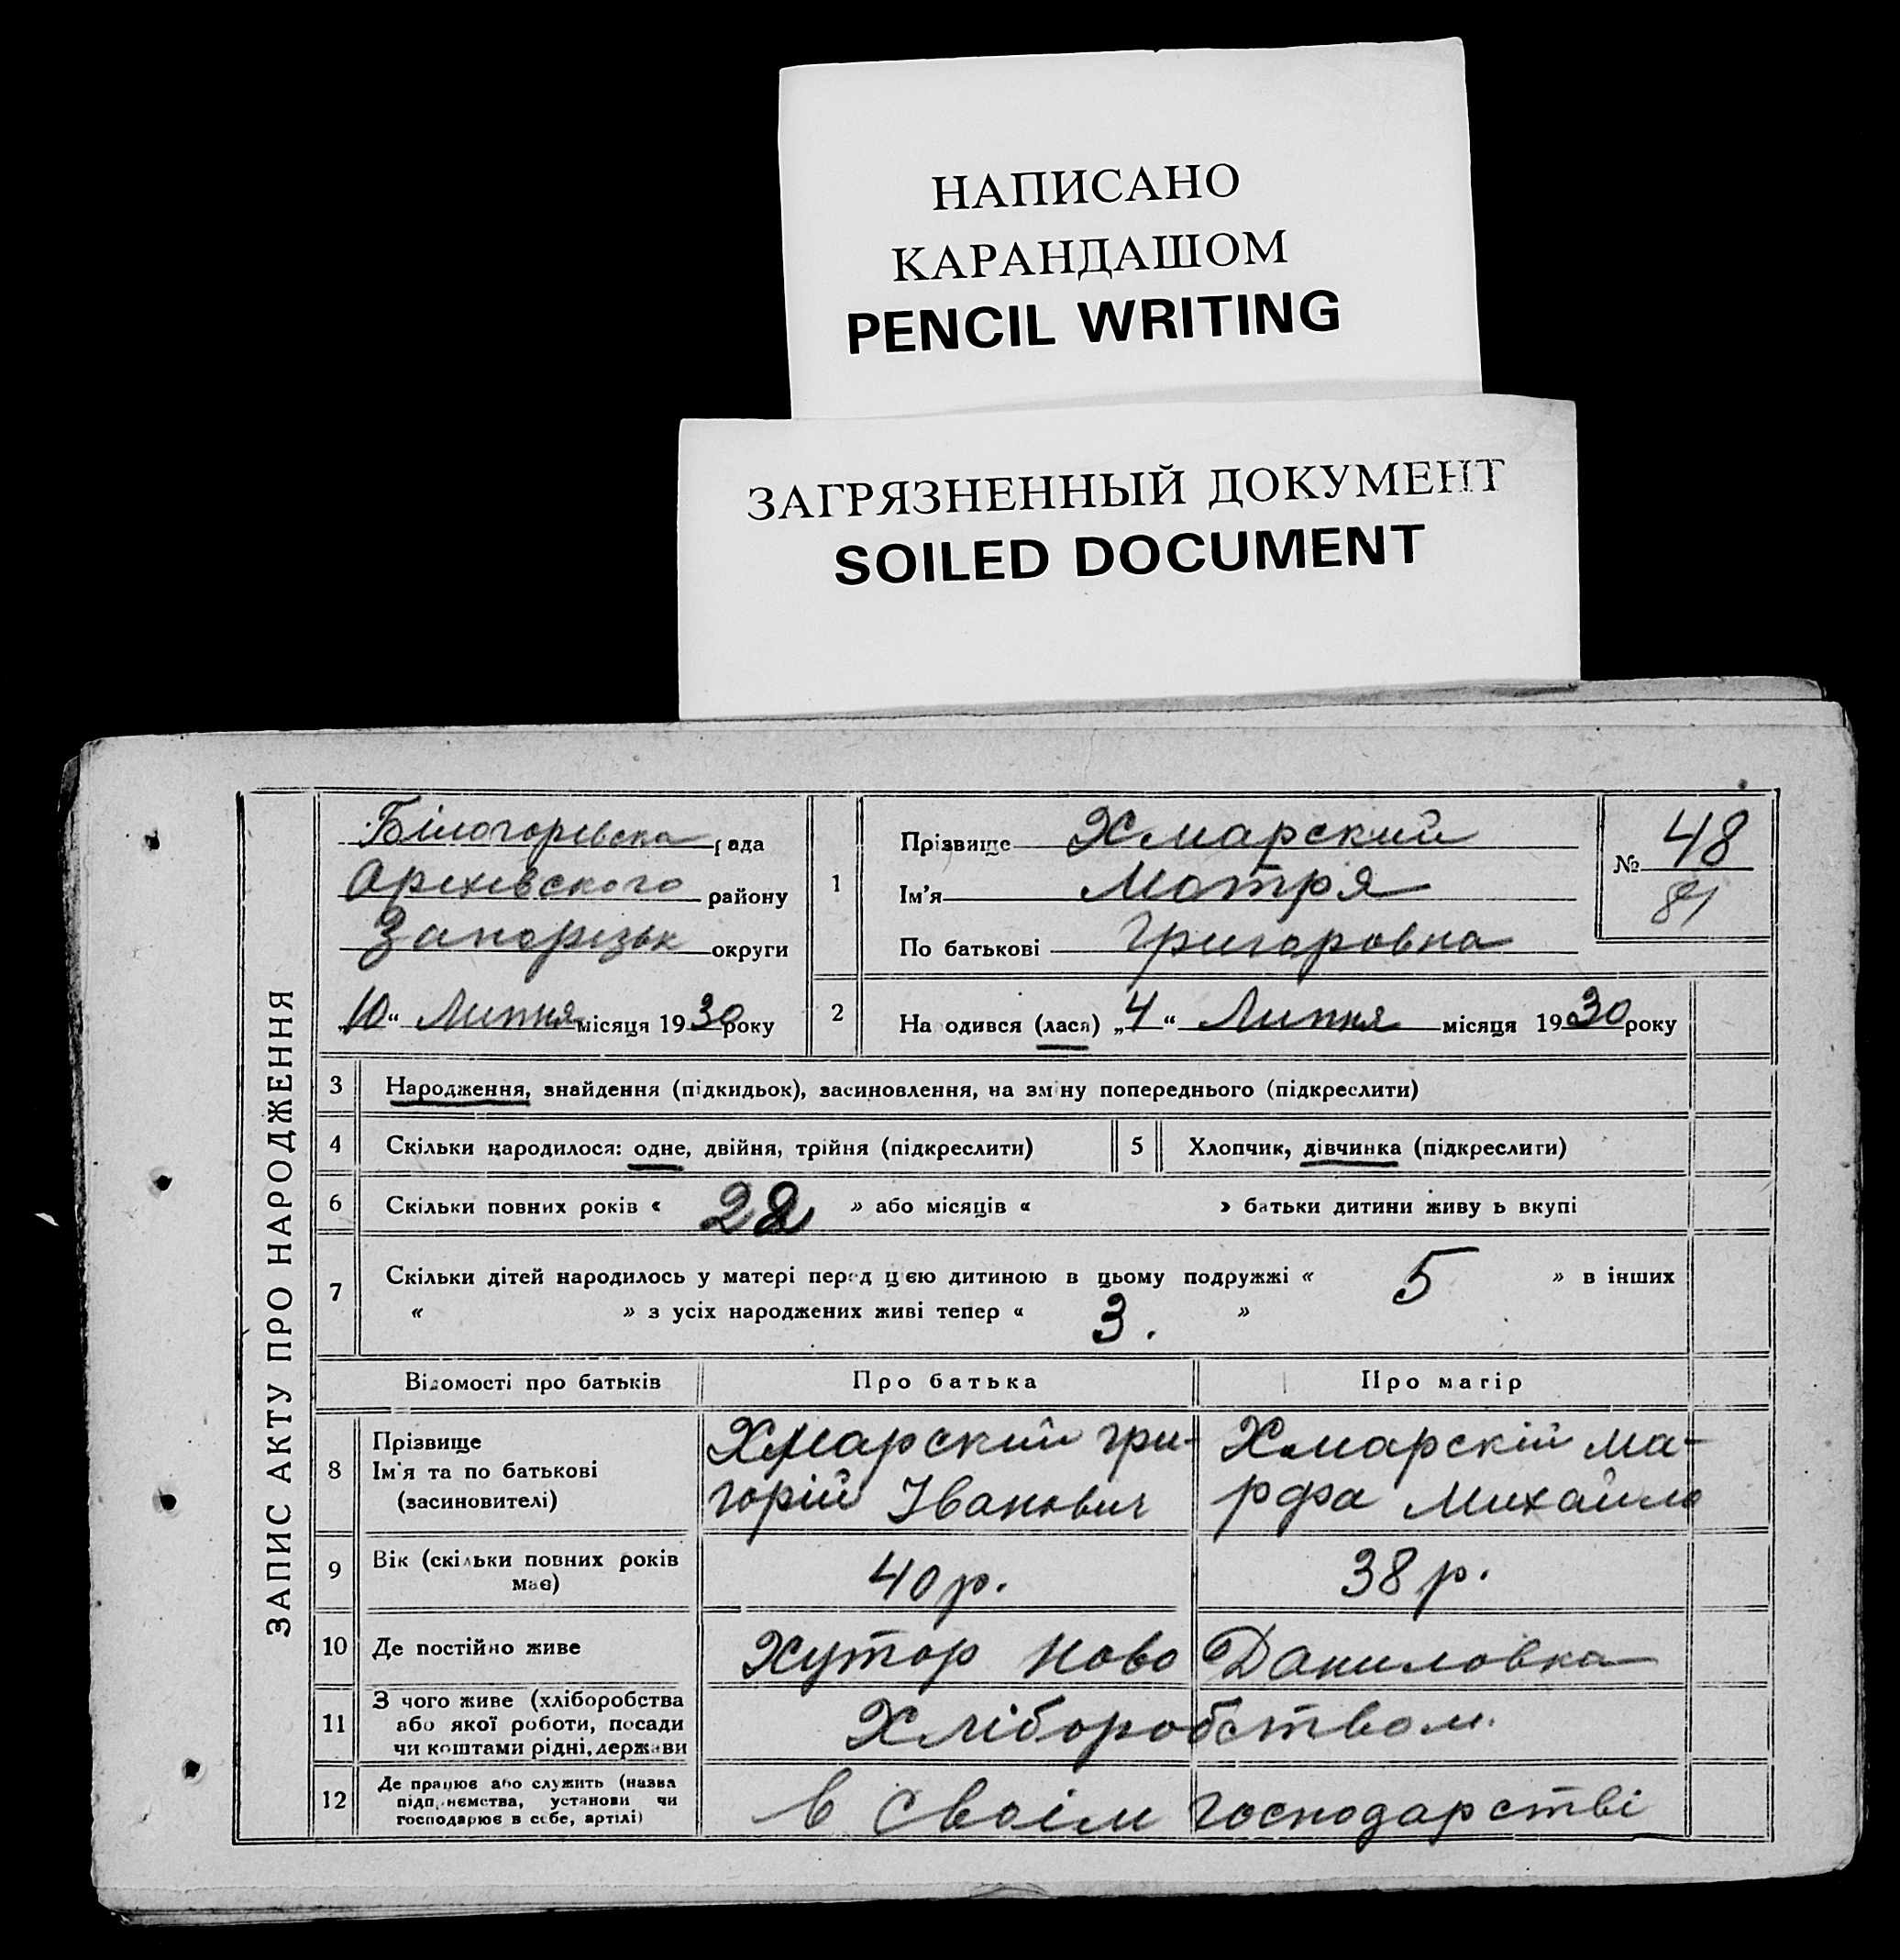 НАПИСАНО
КАРАНДАШОМ
PENCIL WRITING
ЗАГРЯЗНЕННЫЙ ДОКУМЕНТ
SOILED DOCUMENT
ЗАПИС АКТУ ПРО НАРОДЖЕННЯ
Білогоревска рада
Оріхівского району
Запорізьк округи
„10“ Липня місяця 1930 року
1
Прізвище Хмарский
Ім'я Мотря
По батькові Григоровна
№ 48
81
2
Народився (лася) „4“ Липня місяця 1930 року
3 Народження, знайдення (підкидьок), засиновлення, на зміну попереднього (підкреслити)
4 Скільки народилося: одне, двійня, трійня (підкреслити) 5 Хлопчик, дівчинка (підкреслити)
6 Скільки повних років « 22 » або місяців « » батьки дитини живуть вкупі
7 Скільки дітей народилось у матері перед цією дитиною в цьому подружжі « 5 » в інших
« » з усіх народжених живі тепер « 3. »
Відомості про батьків Про батька Про матір
8 Прізвище
Ім'я та по батькові
(засиновителі)
Хмарский Гри-
горій Іванович
Хмарскій Ма-
рфа Михайло
9 Вік (скільки повних років
має)
40 р. 38 р.
10 Де постійно живе Хутор Ново Даниловка
11 З чого живе (хліборобства
або якої роботи, посади
чи коштами рідні, держави
Хліборобством.
12 Де працює або служить (назва
підприємства, установи чи
господарює в себе, артілі)
в своім господарстві